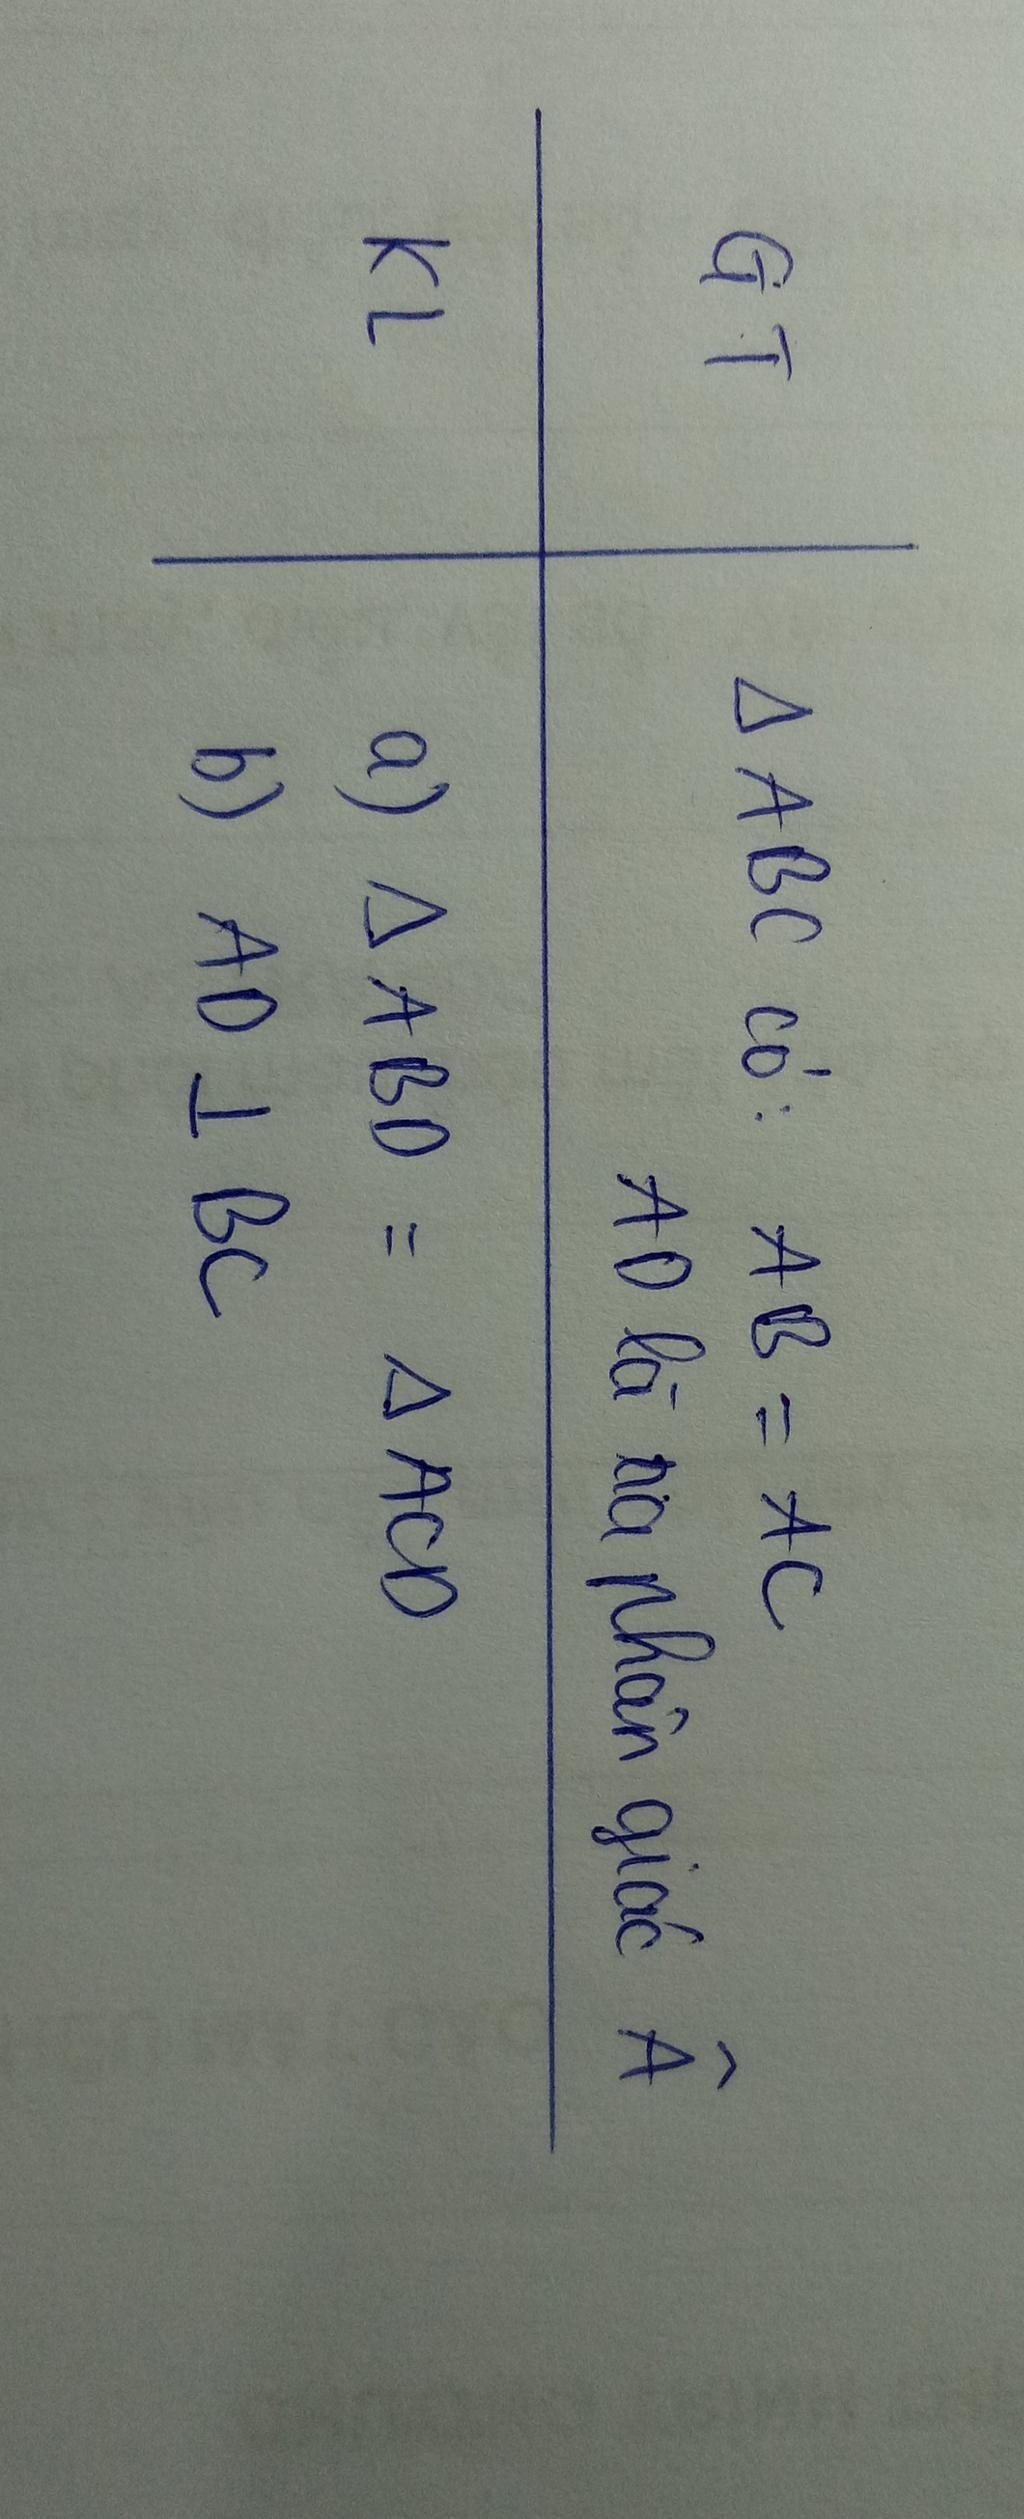 GT
Δ ABC có: AB = AC
AD là tia phân giác Â
KL
a) Δ ABD = Δ ACD
b) AD ⊥ BC